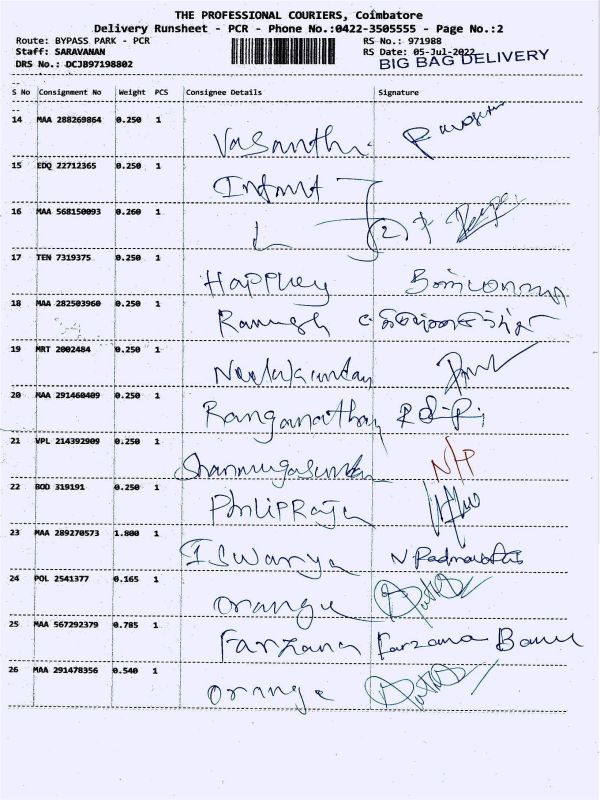 THE PROFESSIONAL COURIERS, Coimbatore
Delivery Runsheet - PCR - Phone No.:0422-3505555 - Page No.:2
Route: BYPASS PARK - PCR RS No.: 971988
Staff: SARAVANAN RS Date: 05-Jul-2022
DRS No.: DCJB97198802 BIG BAG DELIVERY
S No Consignment No Weight PCS Consignee Details Signature
14 MAA 288269864 0.250 1 Vasanthi
15 EDQ 22712365 0.250 1
16 MAA 568150093 0.260 1
17 TEN 7319375 0.250 1 Happhey
18 MAA 282503960 0.250 1 Ramesh
19 MRT 2002484 0.250 1 Neelakandan
20 MAA 291460409 0.250 1 Ranganathan
21 VPL 214392909 0.250 1 Shanmugasundar N/P
22 BOD 319191 0.250 1 PhilipRaja
23 MAA 289270573 1.800 1 ISwarya N Padmavathi
24 POL 2541377 0.165 1 Orange
25 MAA 567292379 0.785 1 Farzana Farzana Banu
26 MAA 291478356 0.540 1 Orange